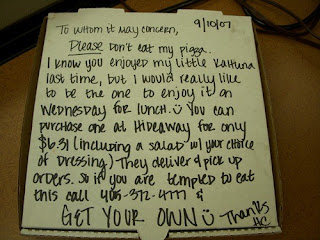 To whom it may concern, 9/10/07
Please Don't eat my pizza.
I know you enjoyed my little Kahuna
last time, but I would really like
to be the one to enjoy it on
Wednesday for lunch. You can
purchase one at Hideaway for only
$6.31 (including a salad w/ your choice
of dressing) They deliver & pick up
orders. So if you are tempted to eat
this call 405-372-4777 &
GET YOUR OWN Thanks